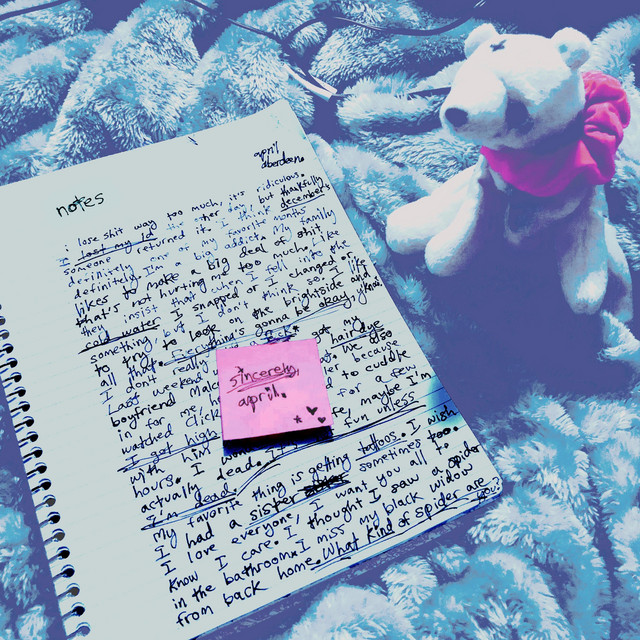 april
aberdeen.
notes
i lose shit way too much, it's ridiculous.
I lost my id the other day, but thankfully
someone returned it. I think december's
definitely one of my favorite months
definitely I'm a big addict. My family
likes to make a big deal of shit
that's not hurting too much. Like
they insist that when I fell into the
cold water I snapped or I changed or
something but I don't think so. I like
to try to look on the brightside and
all that. Everything's gonna be okay, y'know
I don't really
Last weekend got my
boyfriend hair dye
in for me, We also
watched Click because
I got high to cuddle
with him for a few
hours. I maybe I'm
actually dead. fun unless
I'm dead.
sincerely,
april.
My favorite thing is getting tattoos. I wish
I had a sister sometimes too.
I love everyone, I want you all to
know I care. I thought I saw a spider
in the bathroom. I miss my black widow
from back home. What kind of spider are you?